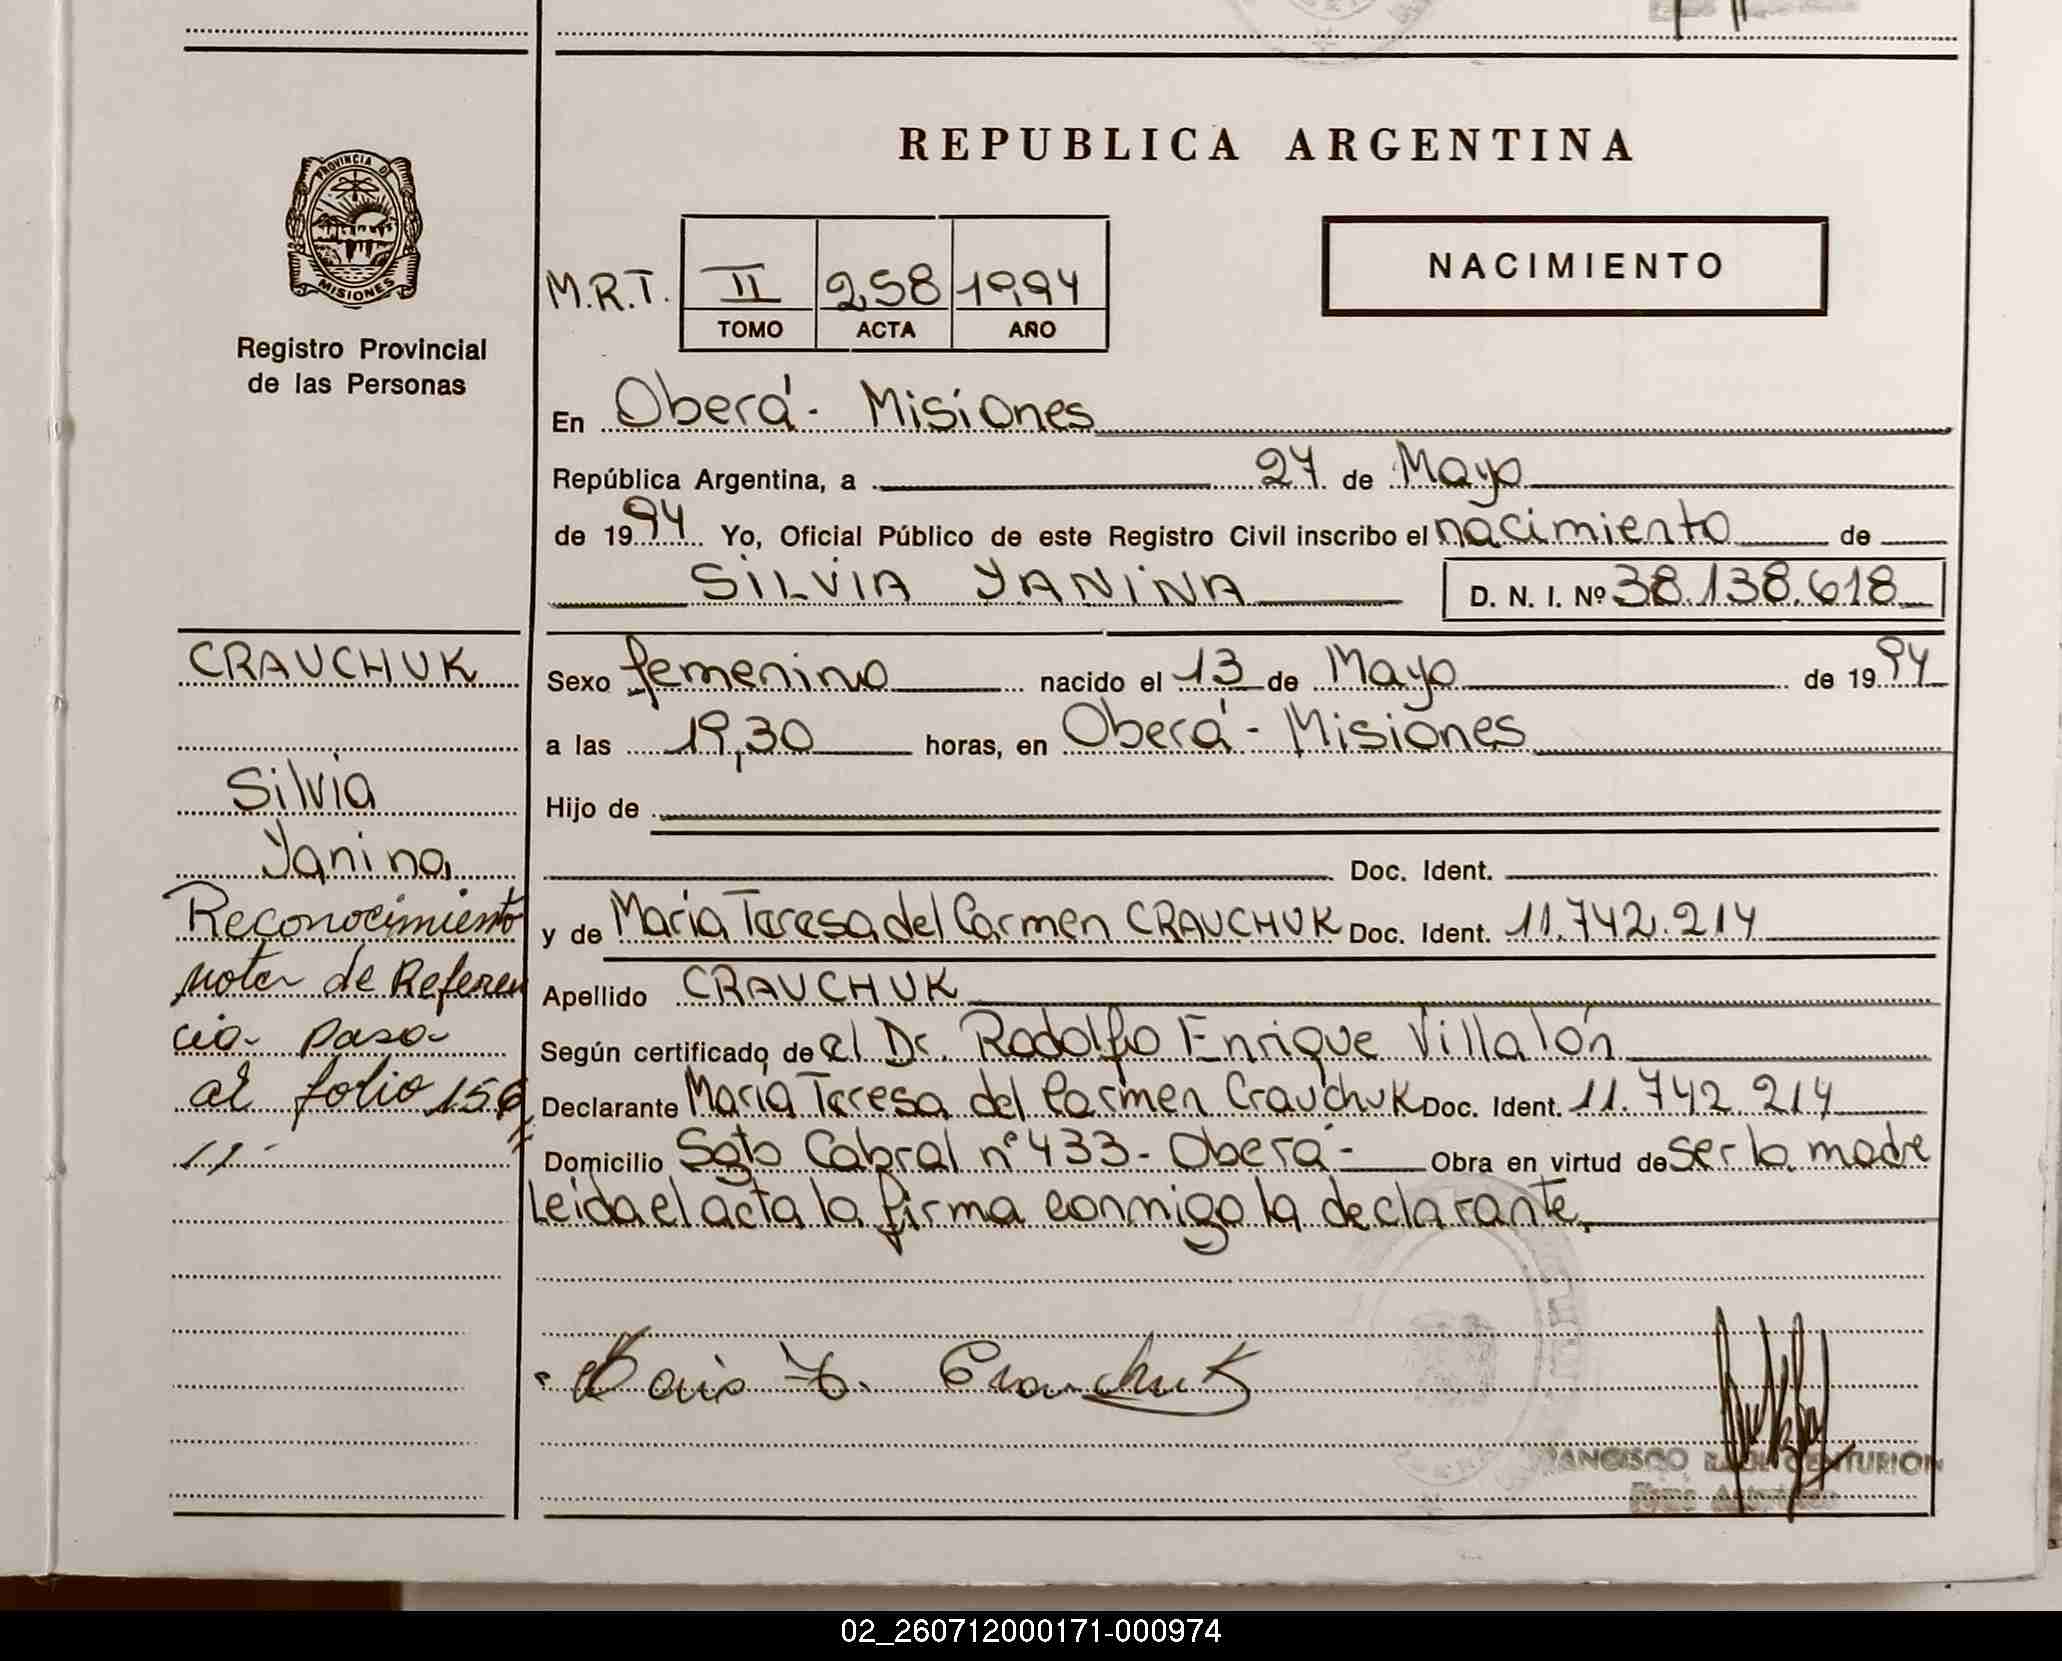 REPUBLICA ARGENTINA
PROVINCIA D
MISIONES
Registro Provincial
de las Personas
M.R.T. II 258 1994
TOMO ACTA AÑO
NACIMIENTO
En Oberá - Misiones
República Argentina, a 27 de Mayo
de 1994 Yo, Oficial Público de este Registro Civil inscribo el nacimiento de
SILVIA YANINA D. N. I. Nº 38.138.618
CRAUCHUK
Silvia
Yanina
Reconocimiento
nota de Referen
cia pasa
al folio 156
Sexo femenino nacido el 13 de Mayo de 1994
a las 19,30 horas, en Oberá - Misiones
Hijo de
Doc. Ident.
y de Maria Teresa del Carmen CRAUCHUK Doc. Ident. 11.742.214
Apellido CRAUCHUK
Según certificado de el Dr. Rodolfo Enrique Villalón
Declarante María Teresa del Carmen Crauchuk Doc. Ident. 11.742.214
Domicilio Sgto Cabral nº 433 - Oberá - Obra en virtud de ser la madre
Leida el acta la firma conmigo la declarante.
Maria T. Crauchuk
RANCISCO RAUL CENTURION
02_260712000171-000974